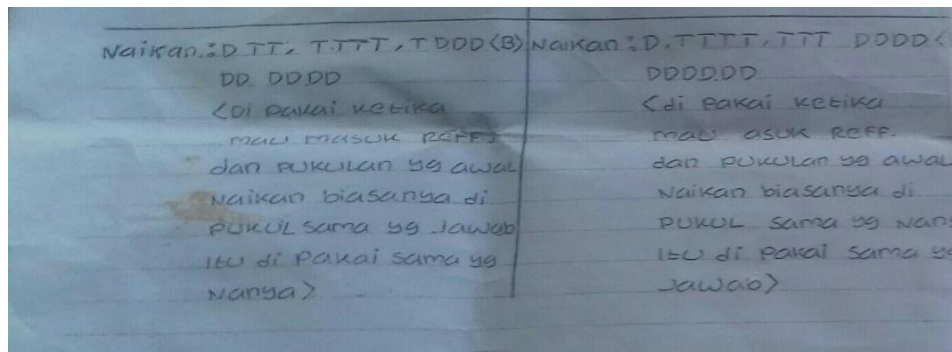 Naikan : D TT, T.TTT, T DDD <B>
DD. DD.DD
<Di Pakai ketika
mau masuk REFF.
dan Pukulan yg awal
Naikan biasanya di
PUKUL sama yg Jawab
itu di Pakai sama yg
Nanya>
Naikan : D, TTTT, TTT DDDD <
DDDD.DD
<di Pakai ketika
mau asuk REFF.
dan Pukulan yg awal
Naikan biasanya di
PUKUL sama yg Nan
itu di Pakai sama yg
Jawab>